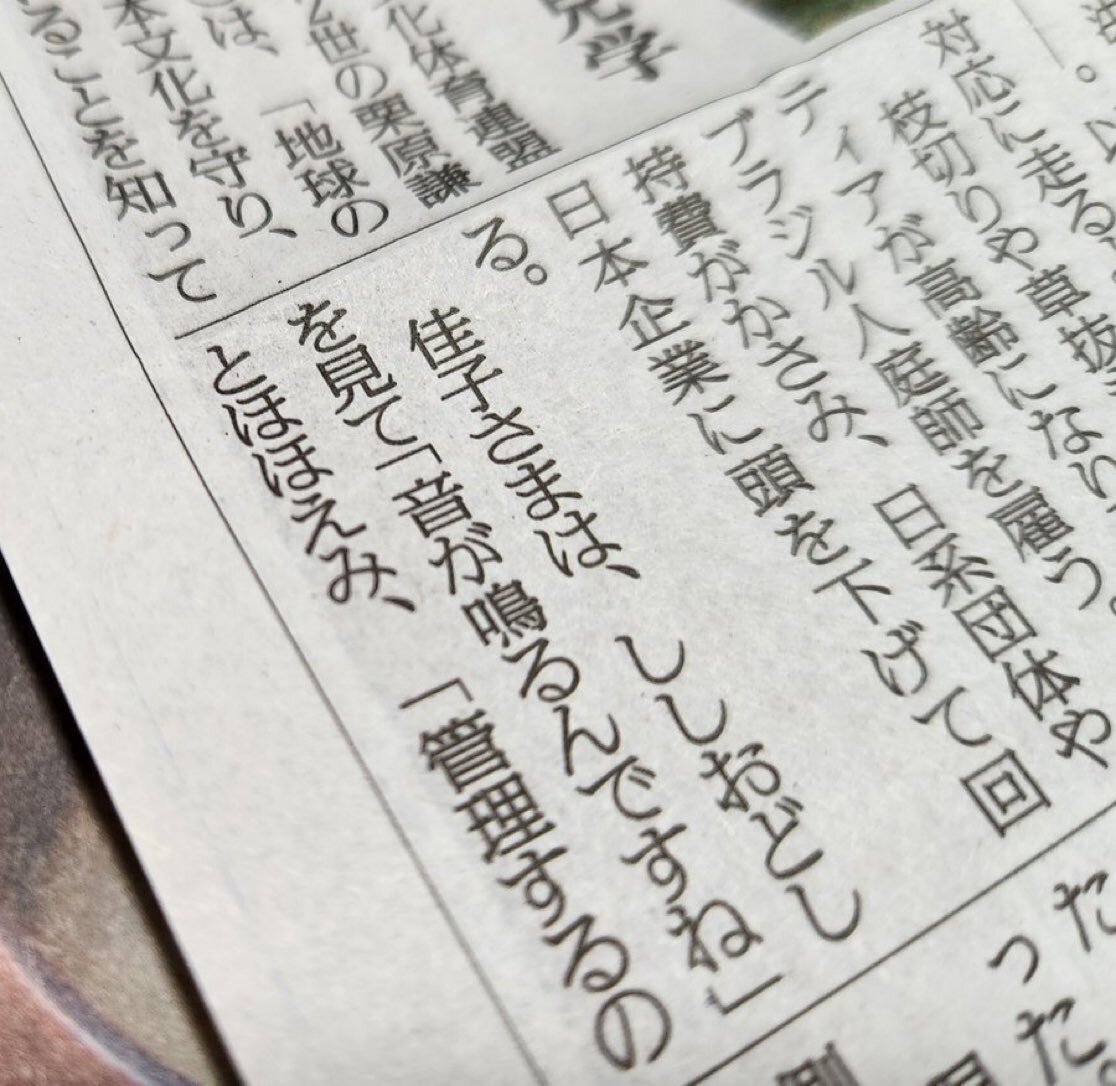 学
化体育連盟
世の栗原謙
は、「地球の
本文化を守り、
ることを知って
対応に走る
枝切りや草抜
ティアが高齢にな
ブラジル人庭師を雇う。
持費がかさみ、日系団体や
日本企業に頭を下げて回
る。
佳子さまは、ししおどし
を見て「音が鳴るんですね」
とほほえみ、「管理するの
だ
った。